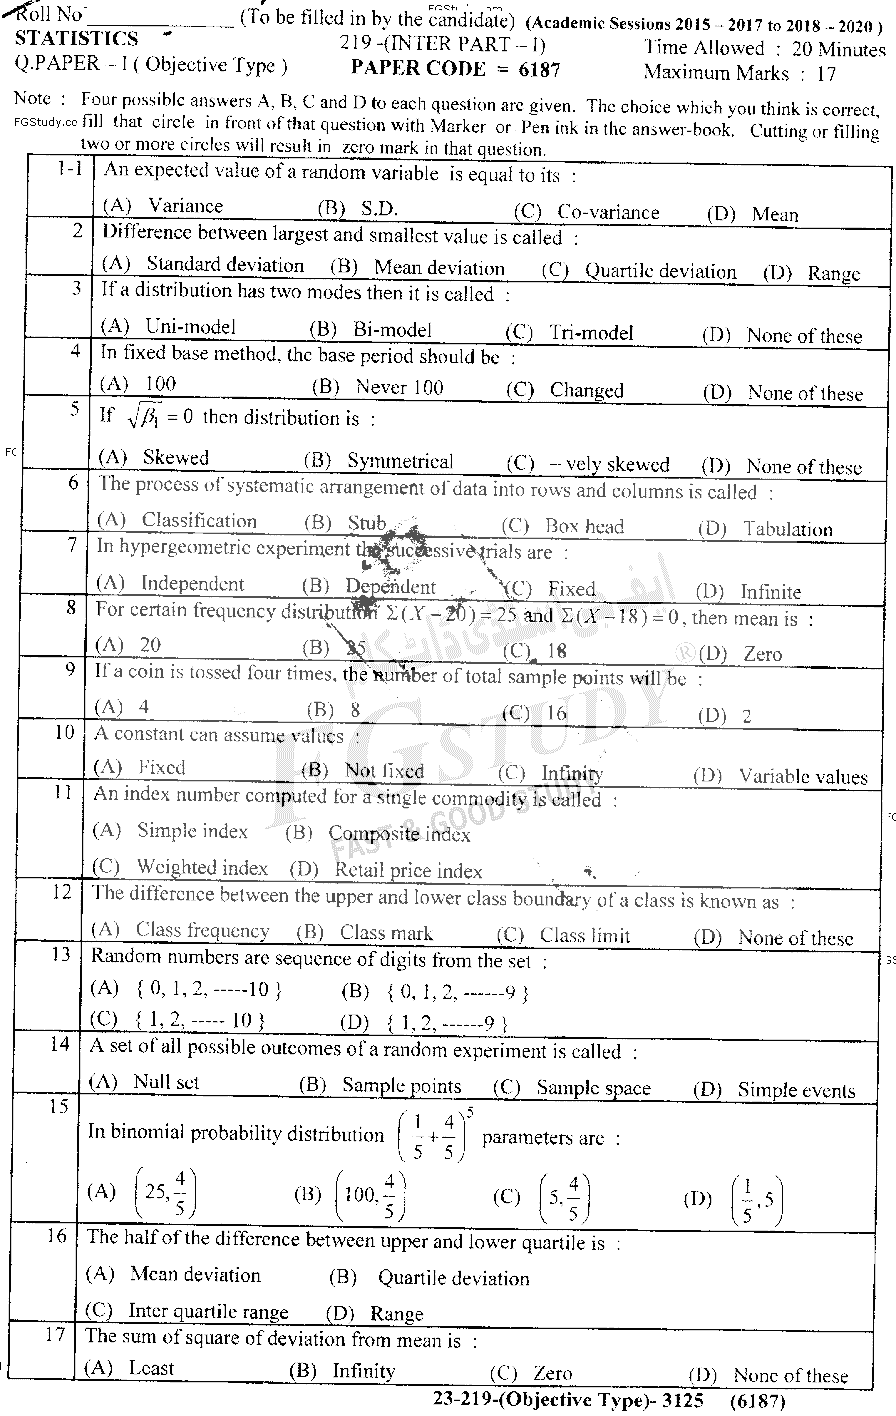 Roll No ____________ (To be filled in by the candidate) (Academic Sessions 2015 – 2017 to 2018 – 2020 )
STATISTICS 219 -(INTER PART – I) Time Allowed : 20 Minutes
Q.PAPER – I ( Objective Type ) PAPER CODE = 6187 Maximum Marks : 17
Note : Four possible answers A, B, C and D to each question are given. The choice which you think is correct,
FGStudy.co fill that circle in front of that question with Marker or Pen ink in the answer-book. Cutting or filling
two or more circles will result in zero mark in that question.
1-1 An expected value of a random variable is equal to its :
(A) Variance (B) S.D. (C) Co-variance (D) Mean
2 Difference between largest and smallest value is called :
(A) Standard deviation (B) Mean deviation (C) Quartile deviation (D) Range
3 If a distribution has two modes then it is called :
(A) Uni-model (B) Bi-model (C) Tri-model (D) None of these
4 In fixed base method, the base period should be :
(A) 100 (B) Never 100 (C) Changed (D) None of these
5 If √β₁ = 0 then distribution is :
(A) Skewed (B) Symmetrical (C) – vely skewed (D) None of these
6 The process of systematic arrangement of data into rows and columns is called :
(A) Classification (B) Stub (C) Box head (D) Tabulation
7 In hypergeometric experiment the successive trials are :
(A) Independent (B) Dependent (C) Fixed (D) Infinite
8 For certain frequency distribution Σ(X – 20) = 25 and Σ(X – 18) = 0, then mean is :
(A) 20 (B) 25 (C) 18 (D) Zero
9 If a coin is tossed four times, the number of total sample points will be :
(A) 4 (B) 8 (C) 16 (D) 2
10 A constant can assume values :
(A) Fixed (B) Not fixed (C) Infinity (D) Variable values
11 An index number computed for a single commodity is called :
(A) Simple index (B) Composite index
(C) Weighted index (D) Retail price index
12 The difference between the upper and lower class boundary of a class is known as :
(A) Class frequency (B) Class mark (C) Class limit (D) None of these
13 Random numbers are sequence of digits from the set :
(A) { 0, 1, 2, -----10 } (B) { 0, 1, 2, ------9 }
(C) { 1, 2, ----- 10 } (D) { 1, 2, ------9 }
14 A set of all possible outcomes of a random experiment is called :
(A) Null set (B) Sample points (C) Sample space (D) Simple events
15 In binomial probability distribution (1/5 + 4/5)⁵ parameters are :
(A) (25, 4/5) (B) (100, 4/5) (C) (5, 4/5) (D) (1/5, 5)
16 The half of the difference between upper and lower quartile is :
(A) Mean deviation (B) Quartile deviation
(C) Inter quartile range (D) Range
17 The sum of square of deviation from mean is :
(A) Least (B) Infinity (C) Zero (D) None of these
23-219-(Objective Type)- 3125 (6187)
ایف جی سٹڈی ڈاٹ کام
FG STUDY ®
FAST & GOOD STUDY